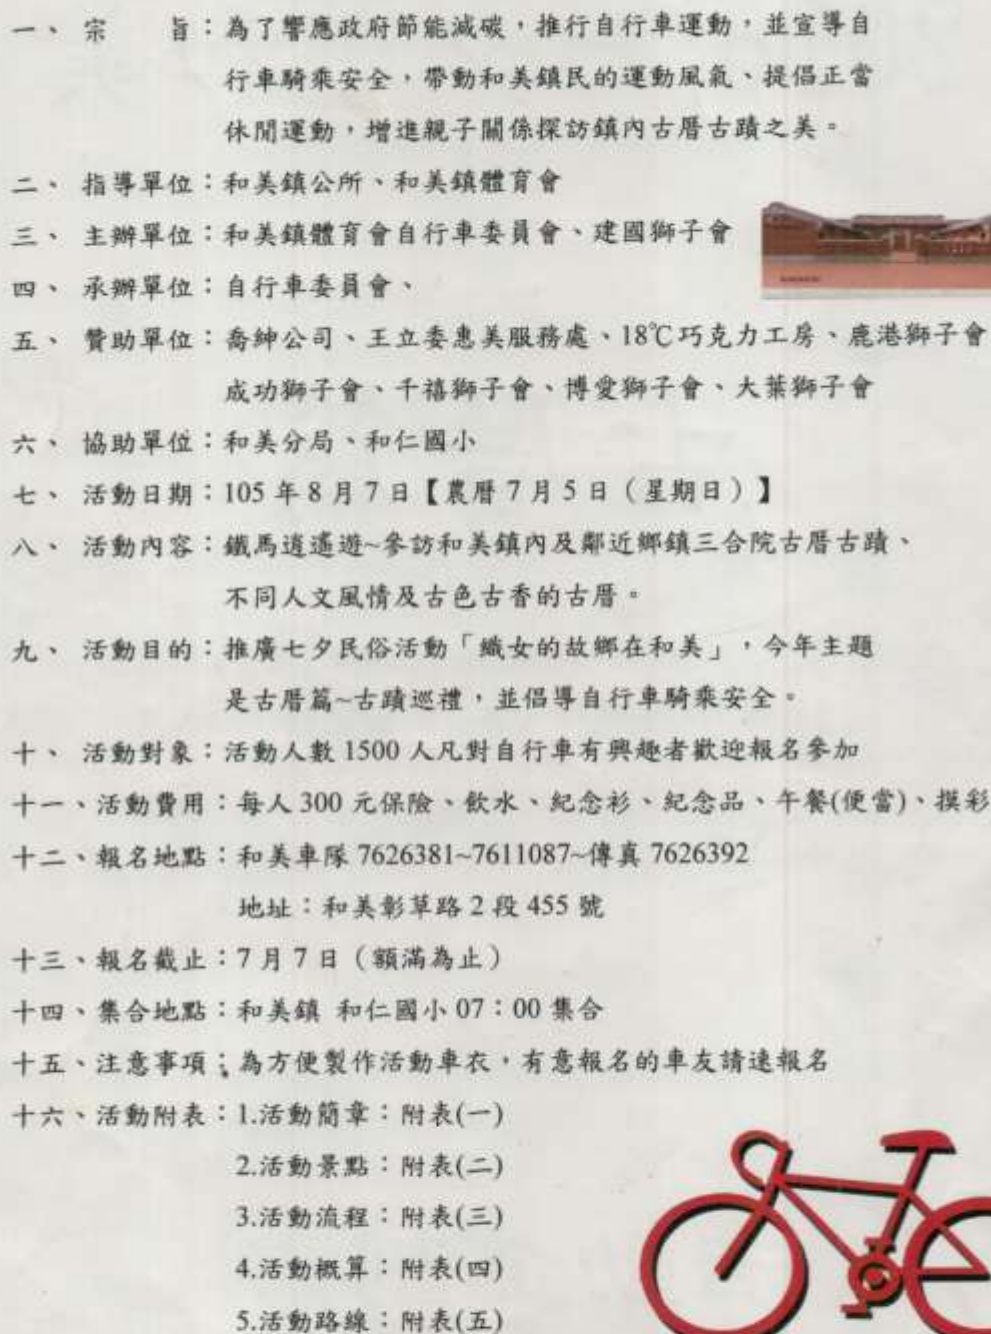 一、 宗　　旨：為了響應政府節能減碳，推行自行車運動，並宣導自
行車騎乘安全，帶動和美鎮民的運動風氣、提倡正當
休閒運動，增進親子關係探訪鎮內古厝古蹟之美。
二、 指導單位：和美鎮公所、和美鎮體育會
三、 主辦單位：和美鎮體育會自行車委員會、建國獅子會
四、 承辦單位：自行車委員會、
五、 贊助單位：喬紳公司、王立委惠美服務處、18℃巧克力工房、鹿港獅子會
成功獅子會、千禧獅子會、博愛獅子會、大葉獅子會
六、 協助單位：和美分局、和仁國小
七、 活動日期：105 年 8 月 7 日【農曆 7 月 5 日（星期日）】
八、 活動內容：鐵馬逍遙遊~參訪和美鎮內及鄰近鄉鎮三合院古厝古蹟、
不同人文風情及古色古香的古厝。
九、 活動目的：推廣七夕民俗活動「織女的故鄉在和美」，今年主題
是古厝篇~古蹟巡禮，並倡導自行車騎乘安全。
十、 活動對象：活動人數 1500 人凡對自行車有興趣者歡迎報名參加
十一、活動費用：每人 300 元保險、飲水、紀念衫、紀念品、午餐(便當)、摸彩
十二、報名地點：和美車隊 7626381~7611087~傳真 7626392
地址：和美彰草路 2 段 455 號
十三、報名截止：7 月 7 日（額滿為止）
十四、集合地點：和美鎮 和仁國小 07：00 集合
十五、注意事項；為方便製作活動車衣，有意報名的車友請速報名
十六、活動附表：1.活動簡章：附表(一)
2.活動景點：附表(二)
3.活動流程：附表(三)
4.活動概算：附表(四)
5.活動路線：附表(五)